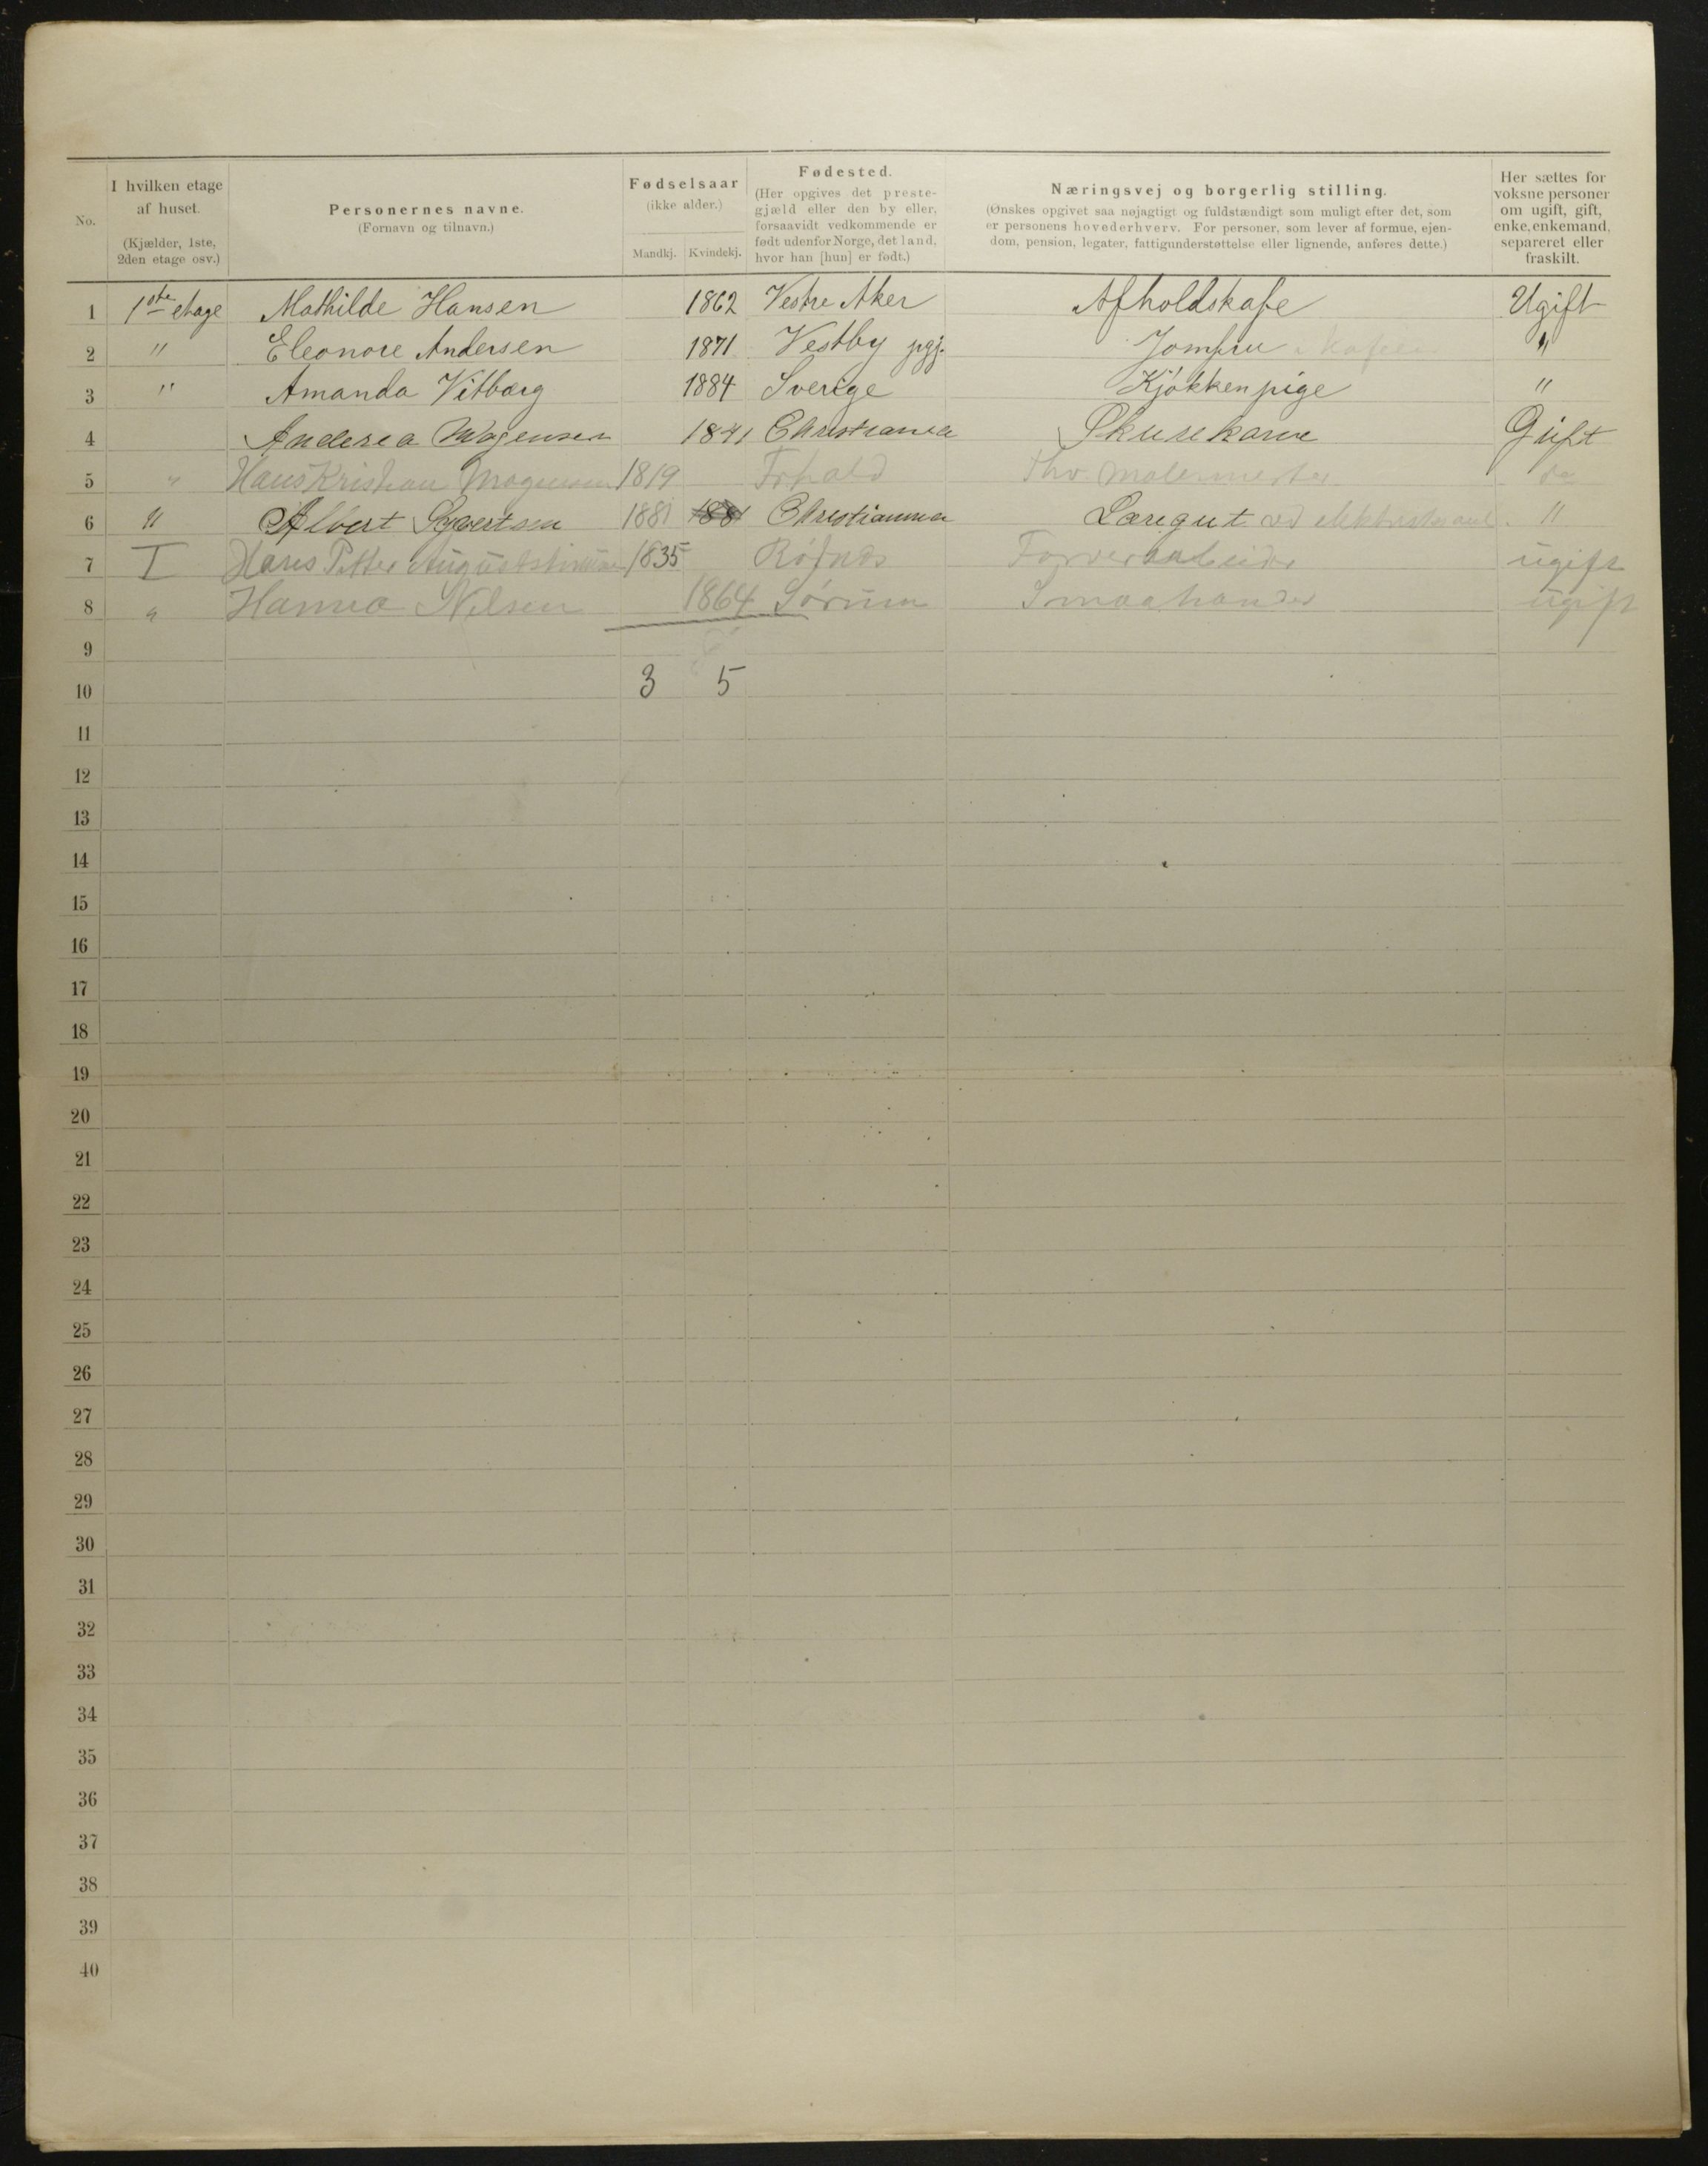 No.
I hvilken etage af huset. (Kjælder, 1ste, 2den etage osv.)
Personernes navne. (Fornavn og tilnavn.)
Fødselsaar (ikke alder.) Mandkj. Kvindekj.
Fødested. (Her opgives det prestegjæld eller den by eller, forsaavidt vedkommende er født udenfor Norge, det land, hvor han [hun] er født.)
Næringsvej og borgerlig stilling. (Ønskes opgivet saa nøjagtigt og fuldstændigt som muligt efter det, som er personens hovederhverv. For personer, som lever af formue, ejendom, pension, legater, fattigunderstøttelse eller lignende, anføres dette.)
Her sættes for voksne personer om ugift, gift, enke, enkemand, separeret eller fraskilt.
1 1ste etage Mathilde Hansen 1862 Vestre Aker Afholdskafe Ugift
2 " Eleonore Andersen 1871 Vestby pgj. Jomfru "
3 " Amanda Vitbarg 1884 Sverige Kjøkkenpige "
4 Anderea Mogensen 1841 Christiania Skurekone Gift
5 " Hans Kristian Mogensen 1819 Fhv. Malermester do
6 " Albert Syvertsen 1881 1881 Christiania Læregut ved "
7 I Hans Petter 1835 Farverarbeider ugift
8 " Hanna Nilsen 1864 Sørum Smaahandel ugift
9
10 3 5
11
12
13
14
15
16
17
18
19
20
21
22
23
24
25
26
27
28
29
30
31
32
33
34
35
36
37
38
39
40